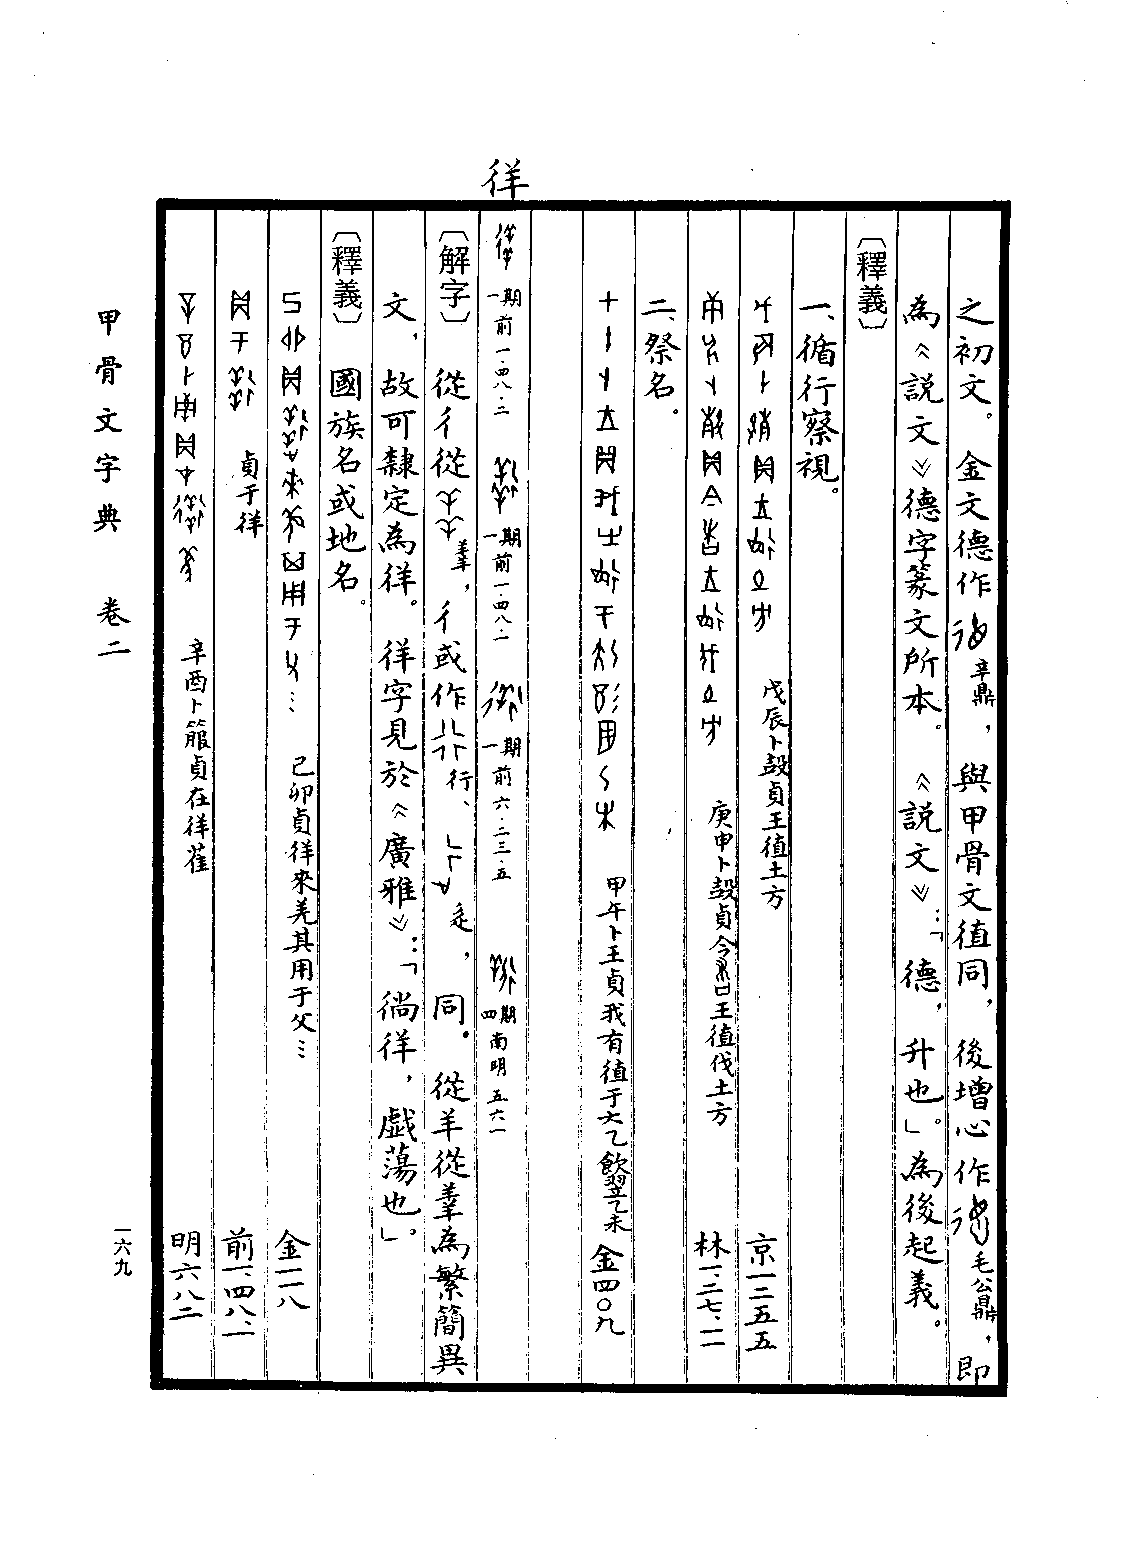 徉
之初文。金文德作辛鼎，與甲骨文徝同，後增心作毛公鼎，即
為《説文》德字篆文所本。《説文》：「德，升也」。為後起義。
〔釋義〕
一、循行察視。
戊辰卜㱿貞王徝土方 京一二五五
庚申卜㱿貞今王徝伐土方 林一、二七、一一
二、祭名。
甲午卜王貞我有徝于大乙飲翌乙未 金四〇九
一期前一・四八・二 一期前一・四八・一 一期前六・二三・五 四期南明五六一
〔解字〕從彳從羍，彳或作行、辵，同。從羊從羍為繁簡異
文，故可隸定為徉。徉字見於《廣雅》：「徜徉，戲蕩也」。
〔釋義〕國族名或地名。
己卯貞徉來羌其用于父… 金一一八
貞于徉 前一、四八、一
辛酉卜箙貞在徉萑 明六八二
甲骨文字典 卷二
一六九